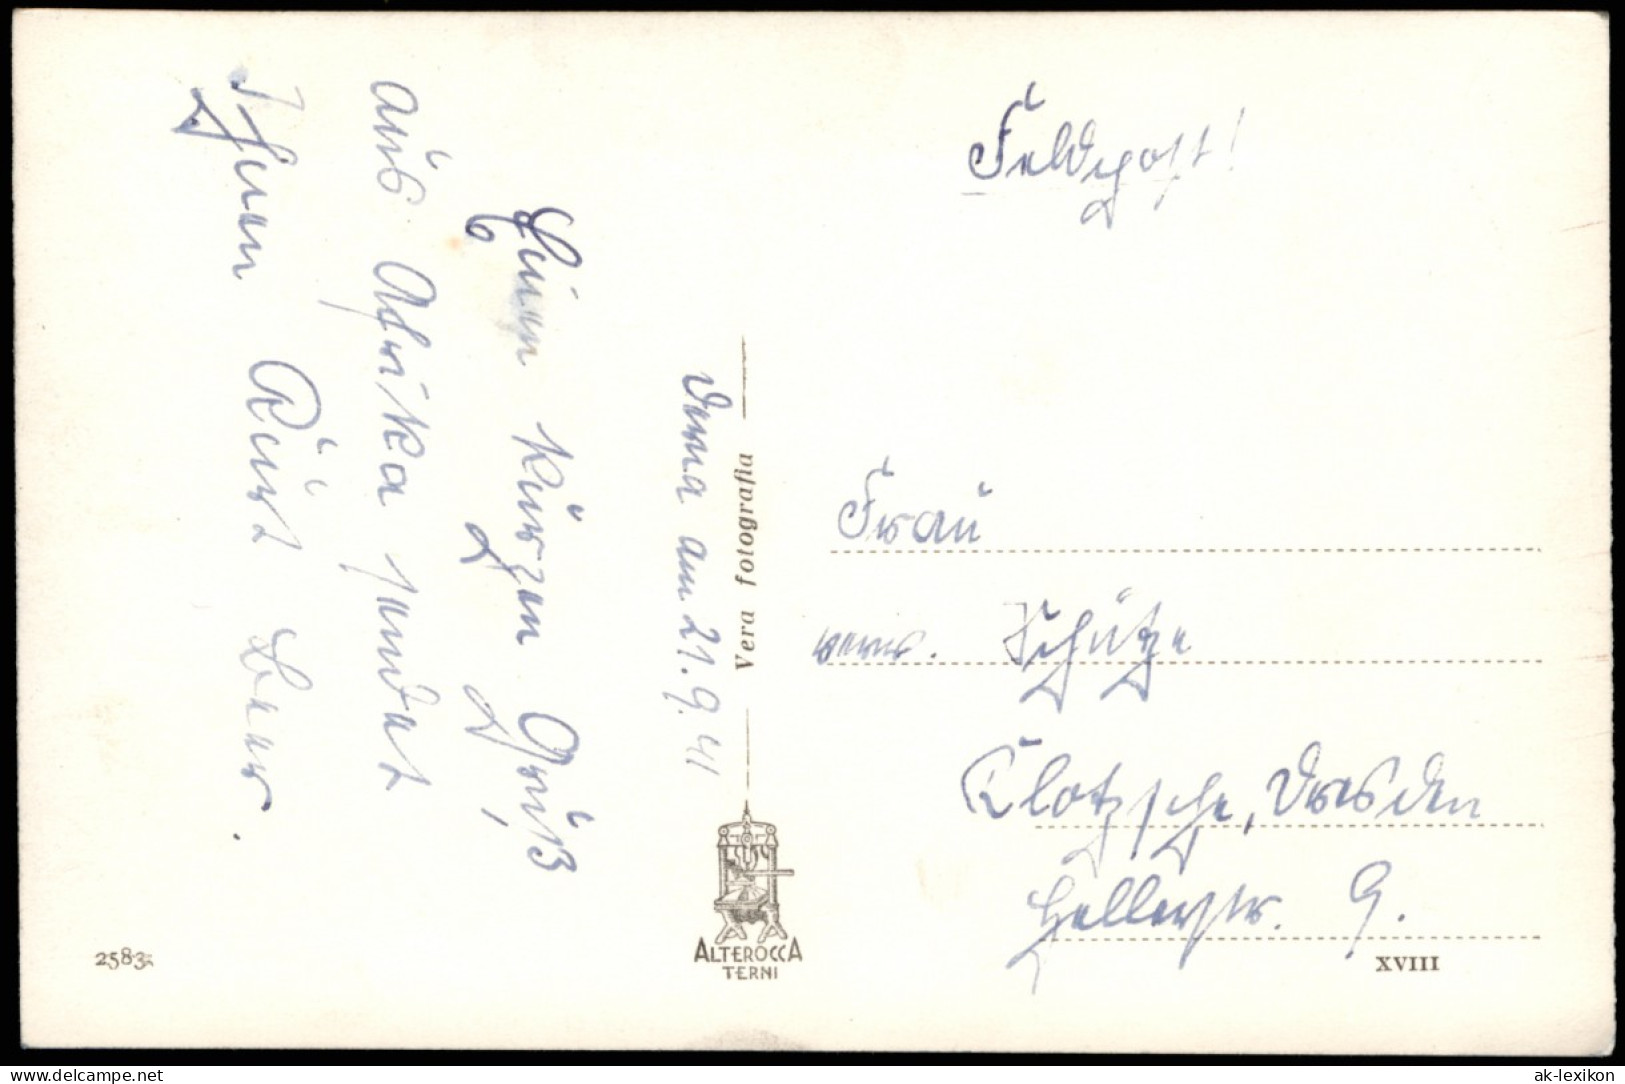 Derna am 21. 9. 41
Einen kurzen Gruß
aus Afrika sendet
Ihnen Kurt Baer.
Feldpost!
Frau
verw. Schütze
Klotzsche, Dresden
Hellerstr. 9.
Vera fotografia
ALTEROCCA
TERNI
2583
XVIII
delcampe.net
ak-lexikon